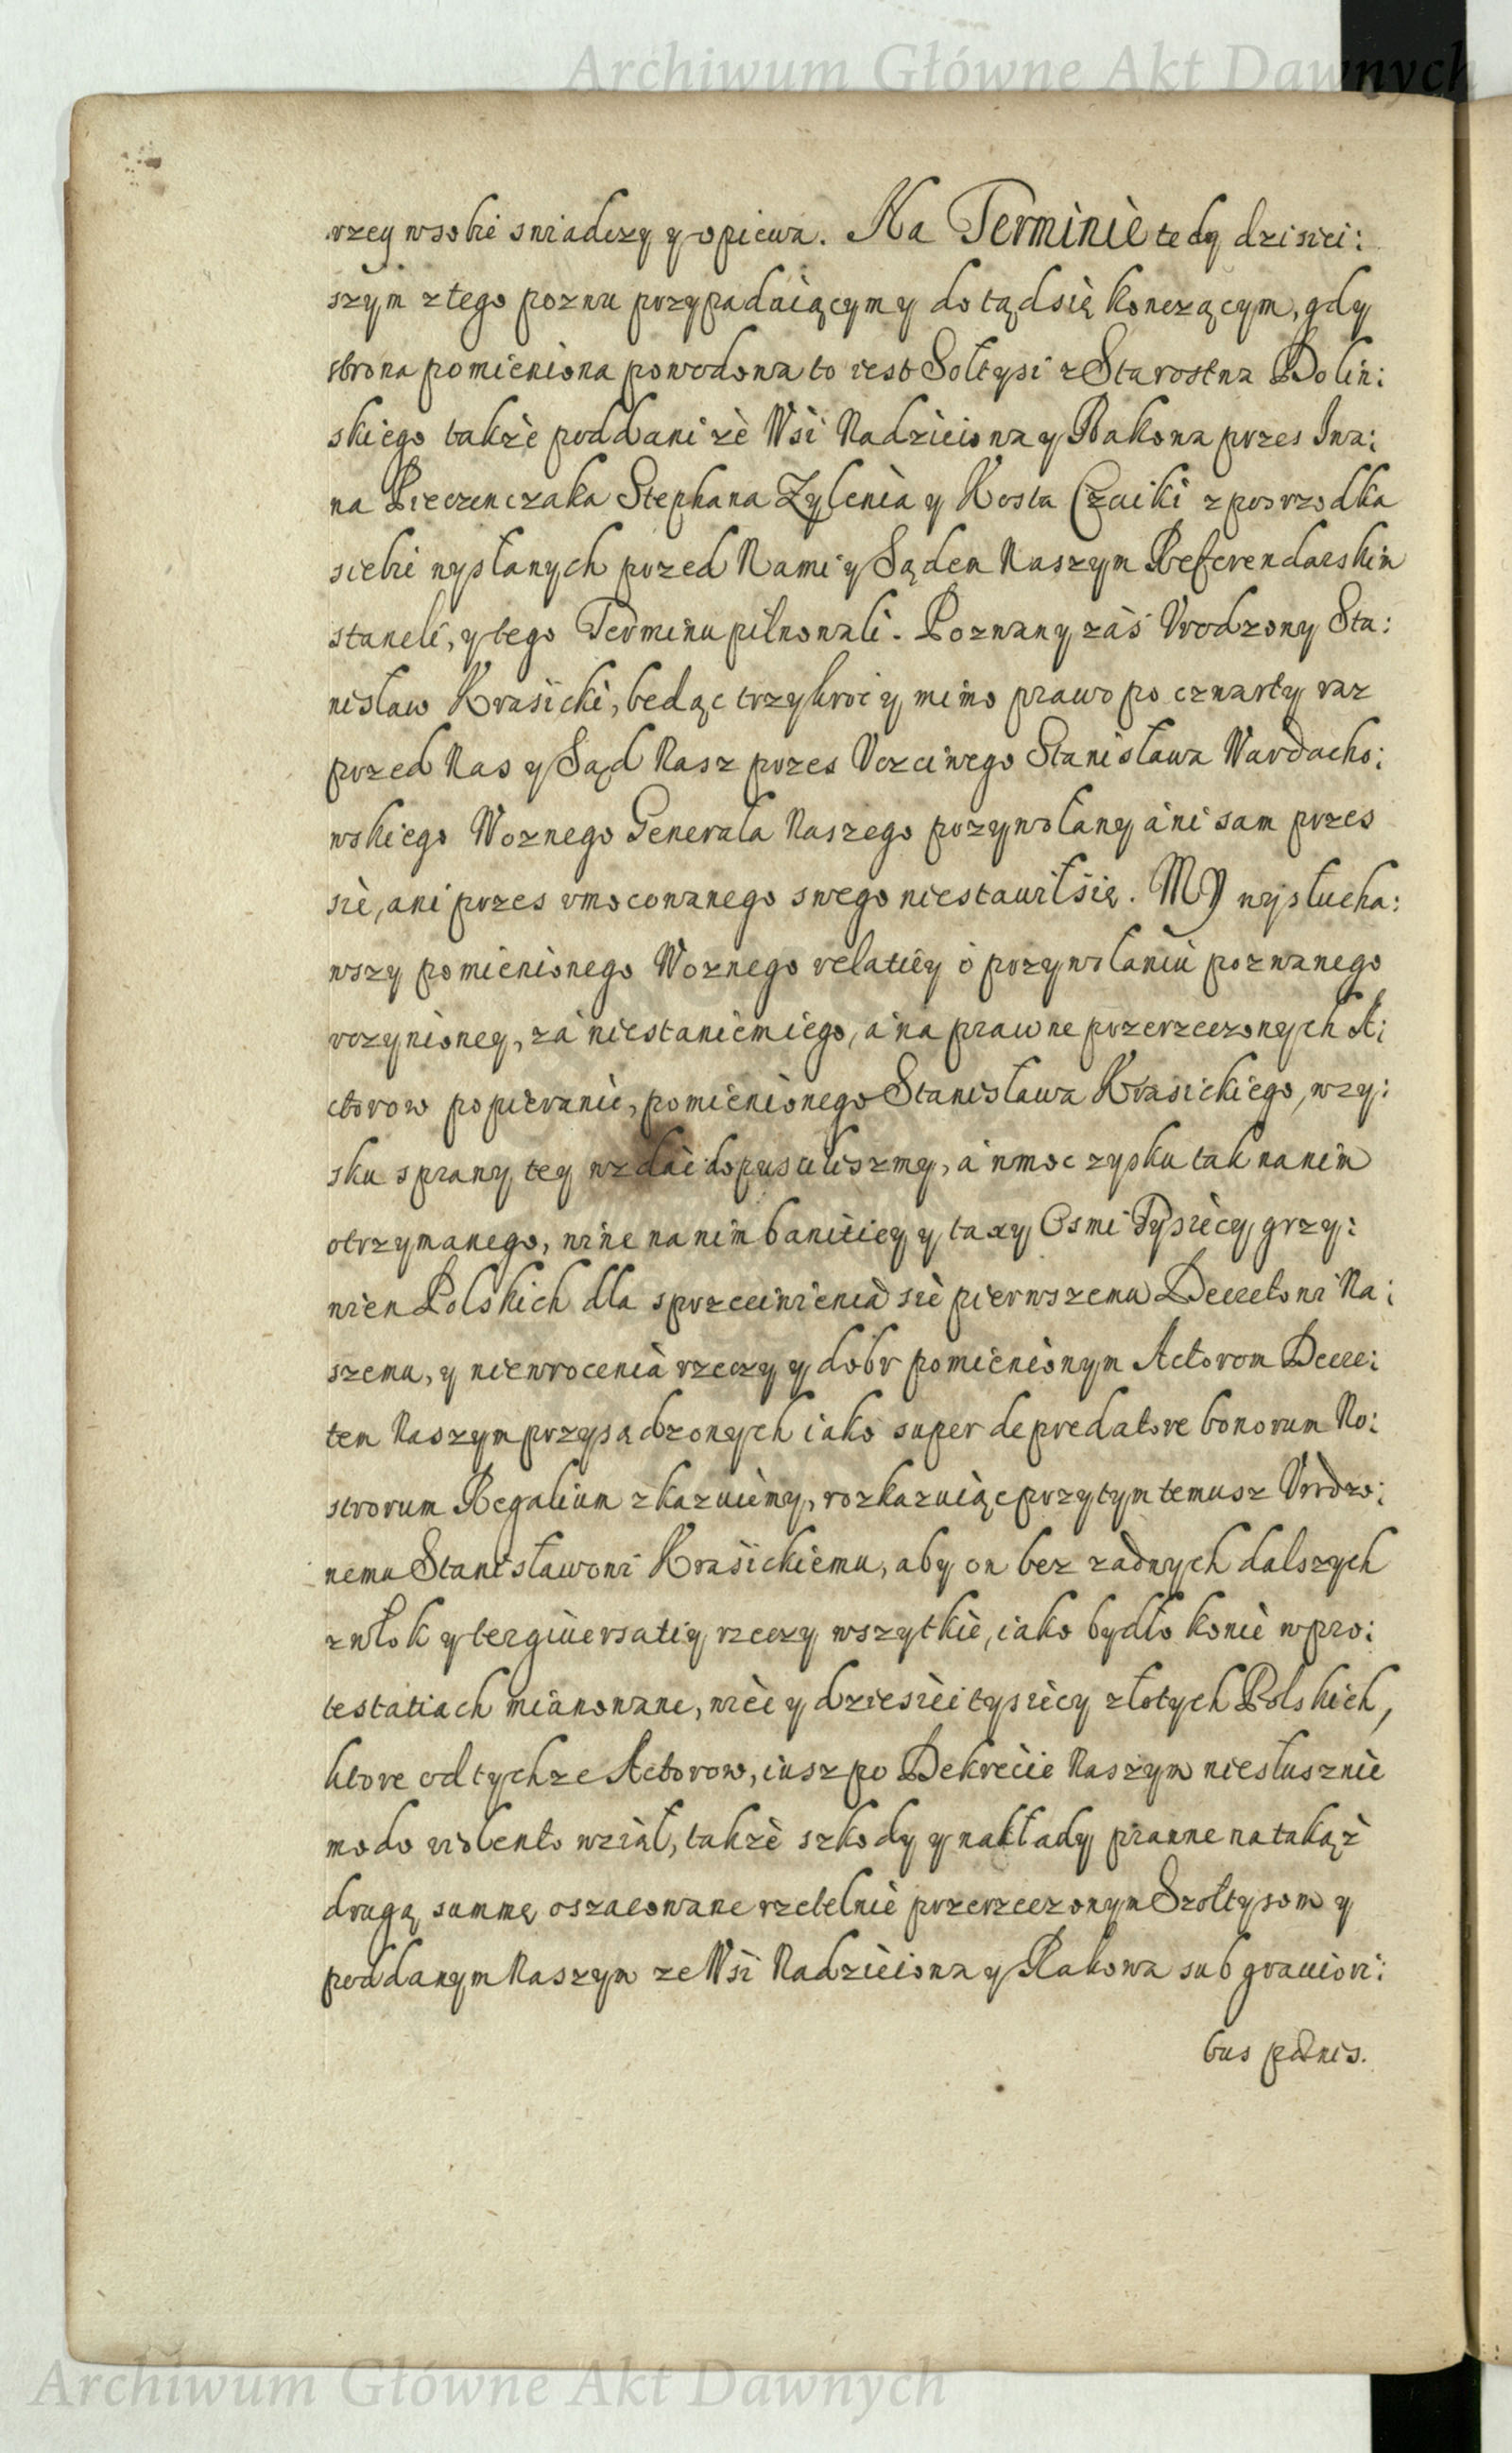 Archiwum Główne Akt Dawnych
rzey wsobie swiadczy y opiewa. Na Terminie tedy dzisiei:
szym ztego pozwu przypadaiącym y dotądsię konczącym, gdy
strona pomieniona powodowa to iest Sołtysi z Starostwa Dolin:
skiego także poddani zè Wsi Nadzieiowa y Rakowa przes Iwa:
na Pieczenczaka Stephana Zylenia y Kosta Czaiki z posrzodka
siebie wysłanych przed Nami y Sądem Naszym Referendarskim
staneli, y tego Terminu pilnowali. Pozwany zaś Vrodzony Sta:
nisław Krasicki, będąc trzykroć y mimo prawo po czwarty raz
przed Nas y Sąd Nasz przes Vczciwego Stanisława Wardacho:
wskiego Woznego Generała Naszego przywołany áni sam przes
się, ani przes vmocowanego swego niestawiłsię. MY wysłucha:
wszy pomienionego Woznego relatiey o przywołaniu pozwanego
vczynioney, zá niestaniem iego, á na prawne przerzeczonych A:
ctorow popieranie, pomienionego Stanisława Krasickiego, wzy:
sku sprawy tey wzdać dopuscilismy, á wmoc zysku tak na nim
otrzymanego, winę na nim banitiey y taxy Osmi Tysięcy grzy:
wien Polskich dla sprzeciwienia się pierwszemu Decretowi Na:
szemu, y niewrocenia rzeczy y dobr pomienionym Actorom Decre:
tem Naszym przysądzonych iako super depredatore bonorum No:
strorum Regalium zkazuiemy, rozkazuiąc przytym temusz Vrodzo:
nemu Stanisławowi Krasickiemu, aby on bez żadnych dalszych
zwłok y tergiuersatiy rzeczy wszytkie, iako bydło konie wpro:
testatiach mianowane, więc y dziesięć tysięcy złotych Polskich,
ktore od tychze Actorow, iusz po Dekrecie Naszym niesłusznie
modo violento wziął, także szkody y nakłady prawne na takąż
drugą summę oszacowane rzetelnie przerzeczonym Szołtysom y
poddanym Naszym ze Wsi Nadzieiowa y Rakowa sub grauiori:
bus pœnis.
Archiwum Główne Akt Dawnych